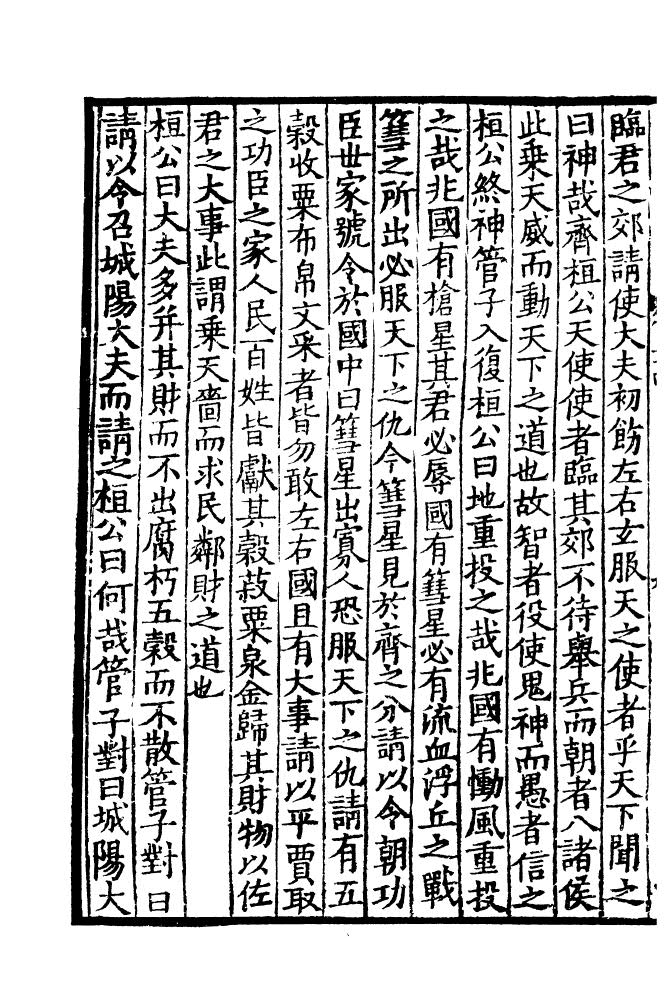 臨君之郊請使大夫初飭左右玄服天之使者乎天下聞之
曰神哉齊桓公天使使者臨其郊不待舉兵而朝者八諸侯
此乘天威而動天下之道也故智者役使鬼神而愚者信之
桓公終神管子入復桓公曰地重投之哉兆國有慟風重投
之哉兆國有槍星其君必辱國有篲星必有流血浮丘之戰
篲之所出必服天下之仇今篲星見於齊之分請以令朝功
臣世家號令於國中曰篲星出寡人恐服天下之仇請有五
穀收粟布帛文采者皆勿敢左右國且有大事請以平賈取
之功臣之家人民百姓皆獻其穀菽粟泉金歸其財物以佐
君之大事此謂乘天嗇而求民鄰財之道也
桓公曰大夫多并其財而不出腐朽五穀而不散管子對曰
請以令召城陽大夫而請之桓公曰何哉管子對曰城陽大